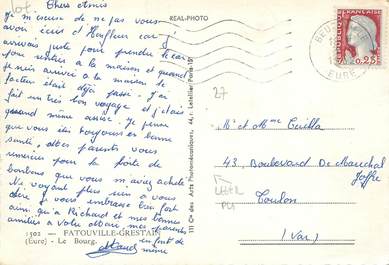 Chers Amis
Je m'excuse de ne pas vous
avoir écris d'Honfleur car j'
arrivais juste pour prendre le car
nous sentiers à la maison et quand
je suis arrivée à la maison le
facteur était déjà passé. J'ai
fait un très bon voyage et j'étais
quand même assise. Je pense
que vous êtes toujours en bonne
santé, Mes parents vous
remercies pour la boîte de
bonbons que vous m'avez acheté
Ne voyant plus rien à vous
dire je vous embrasse bien fort
ainsi qu'à Richard et mes bonnes
amitiés à votre Mère, mes parents
en font de
même
REAL-PHOTO
1502 - FATOUVILLE-GRESTAIN
(Eure) - Le Bourg.
Cie des Arts Photomécaniques, 44, r. Letellier Paris-15e
RÉPUBLIQUE
FRANÇAISE
0,25
EURE
27
Mr et Mme
43, Boulevard de Maréchal
Joffre
Toulon
(Var)